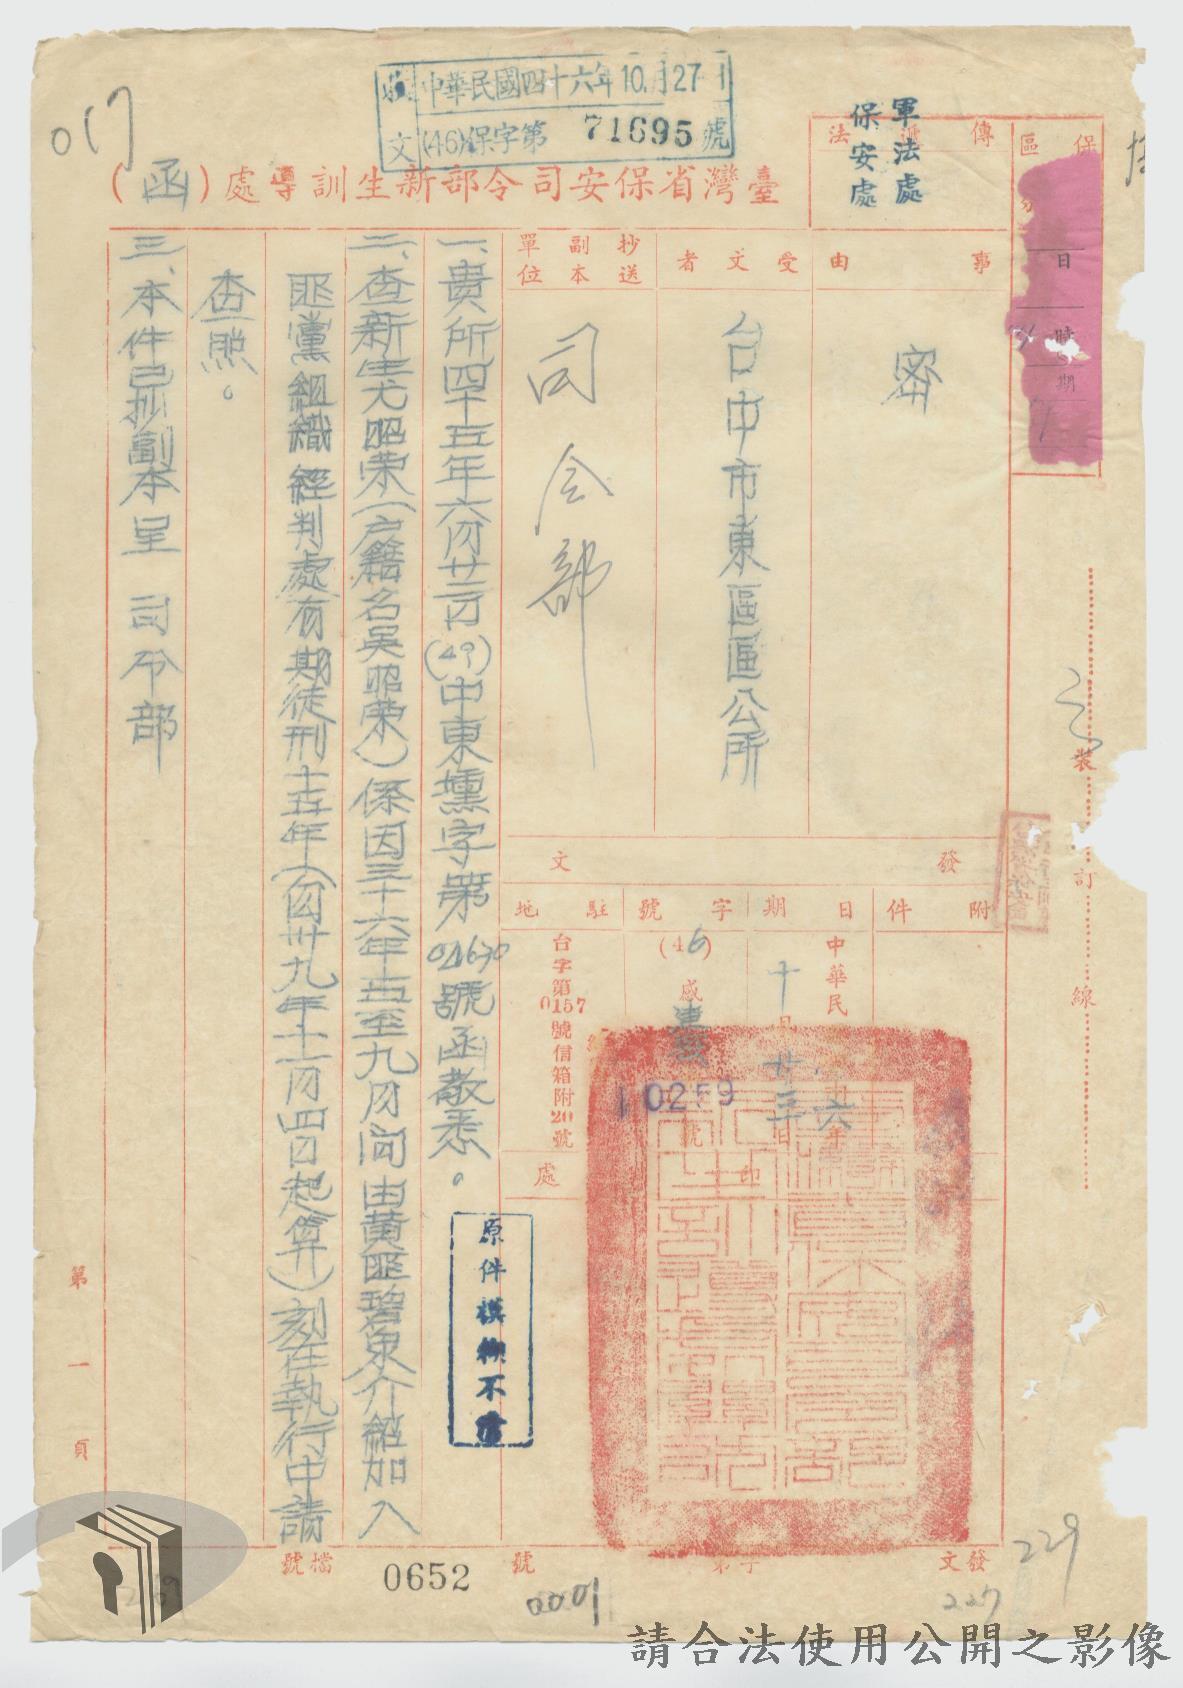 017
收文
中華民國四十六年10月27日
(46)保字第71695號
軍法處
保安處
傳遞法
保
區
日
時
期
臺灣省保安司令部新生訓導處(函)
事由
密
受文者
台中市東區區公所
抄送副本單位
司令部
發文
附件
日期
中華民
六年
十月廿三日
字號
(46)感
10259號
駐地
台字第0157號信箱附20號
印
處
一、貴所四十五年六月廿二日(49)中東壎字第
號函敬悉。
二、查新生尤昭荣(户籍名吳昭荣)係因三十六年五至九月间由黄匪碧東介紹加入
匪黨組織經判處有期徒刑十五年(自卅九年十一月四日起算)刻在執行中請
查照。
三、本件已抄副本呈 司令部
原件模糊不清
裝
訂
線
第一頁
發文
字第
0001
號
檔號
0652
229
227
請合法使用公開之影像